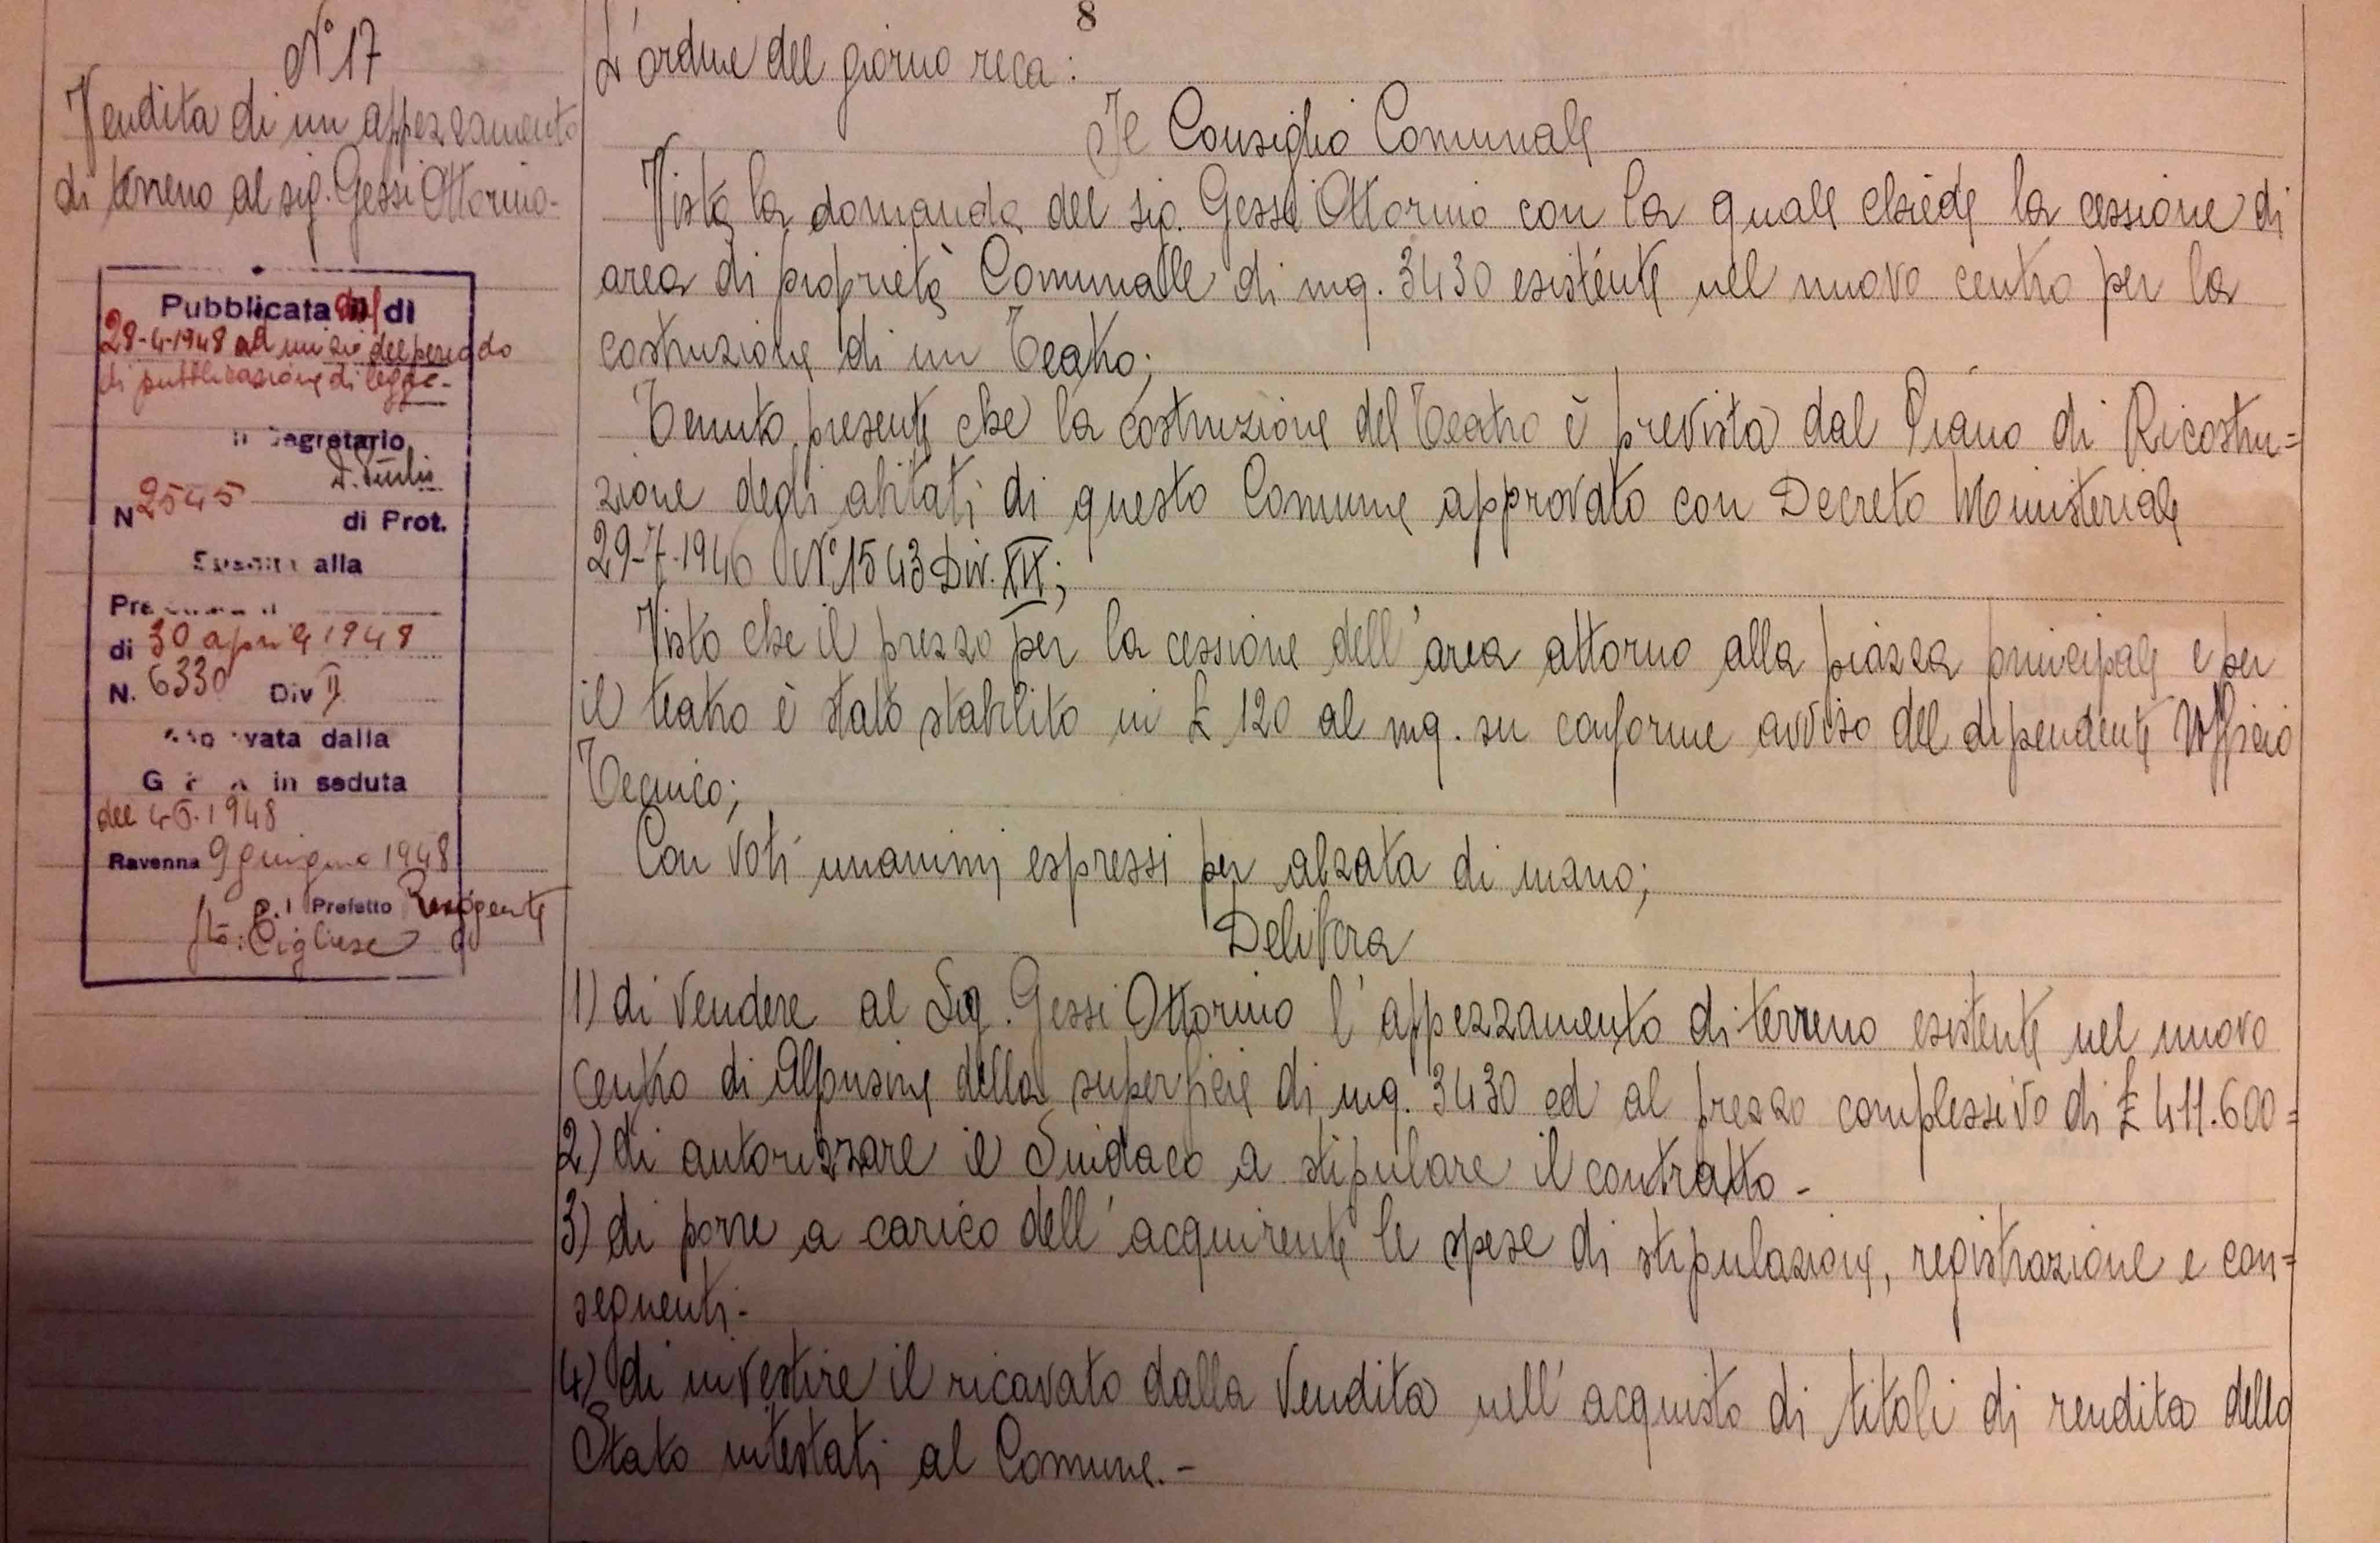 8
N° 17
Vendita di un appezzamento
di terreno al sig. Gessi Ottorino-
Pubblicata dal di
28-4-1948 ad inizio del periodo
di pubblicazione di legge-
Il Segretario
N 2545 di Prot.
alla
di 30 aprile 1948
N. 6330 Div II
dalla
G P A in seduta
del 4-6-1948
Ravenna 9 giugno 1948
p. il Prefetto Reggente
L'ordine del giorno reca:
Il Consiglio Comunale
Vista la domanda del sig. Gessi Ottorino con la quale chiede la cessione di
area di proprietà Comunale di mq. 3430 esistente nel nuovo centro per la
costruzione di un Teatro;
Tenuto presente che la costruzione del Teatro è prevista dal Piano di Ricostru=
zione degli abitati di questo Comune approvato con Decreto Ministeriale
29-7-1946 N° 1543 Div. XIX;
Visto che il prezzo per la cessione dell'area attorno alla piazza principale e per
il teatro è stato stabilito in £ 120 al mq. su conforme avviso del dipendente Ufficio
Tecnico;
Con voti unanimi espressi per alzata di mano;
Delibera
1) di vendere al Sig. Gessi Ottorino l'appezzamento di terreno esistente nel nuovo
centro di Alfonsine della superficie di mq. 3430 ed al prezzo complessivo di £ 411.600=
2) di autorizzare il Sindaco a stipulare il contratto-
3) di porre a carico dell'acquirente le spese di stipulazione, registrazione e con=
seguenti-
4) di investire il ricavato dalla vendita nell'acquisto di titoli di rendita dello
Stato intestati al Comune.-